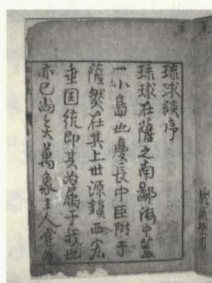 琉球談序
琉球在薩之南鄙海中蓋
一小島也慶長中臣附于
薩然在其上世源鎮西
垂国統即其為属于我也
亦已尚矣萬象主人嘗